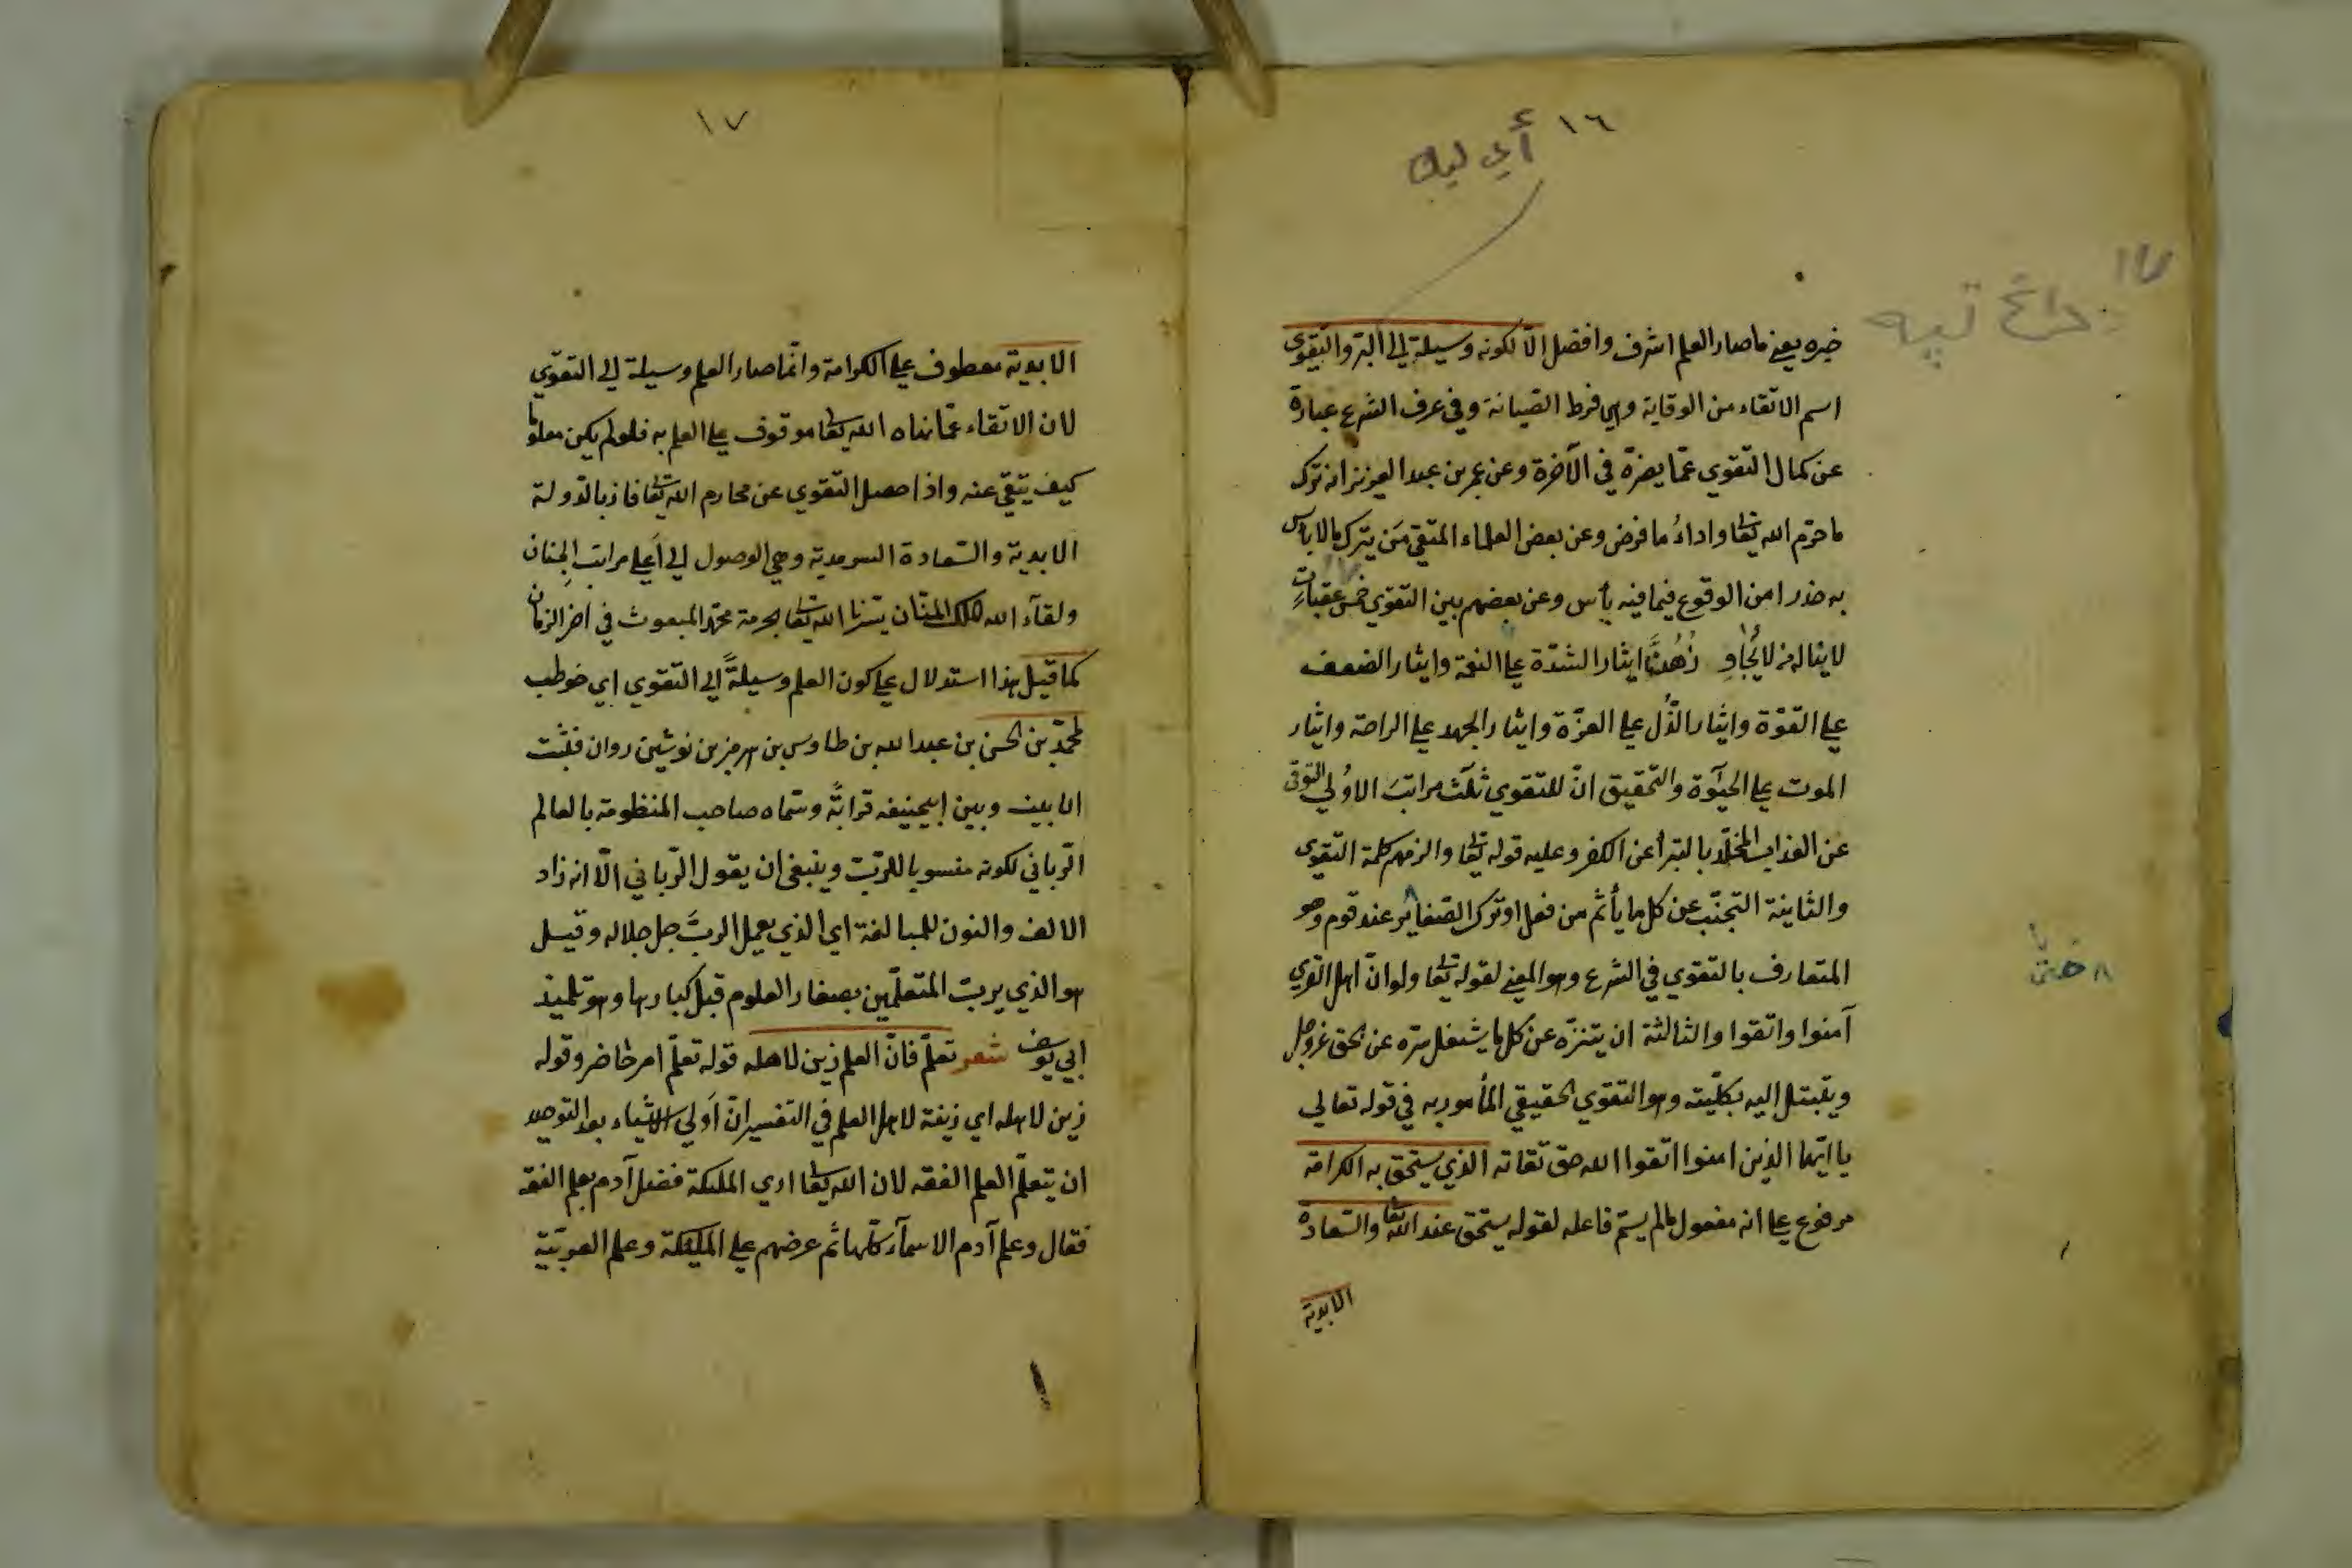 ١٦
أي ليك
خيره يعني ما صار العلم اشرف وافضل الّا لكونه وسيلة الى البرّ والتقوى
اسم الاتقاء من الوقاية وهي فرط الصّيانة وفي عرف الشرع عبارة
عن كمال التّقوي عمّا يضرّه في الآخرة وعن عمر بن عبد العزيز انه ترك
ما حرّم الله تعا واداءُ ما فرض وعن بعض العلماء المتقي مَن يترك ما لا باس
به حذرا من الوقوع فيما فيه بأس وعن بعضهم بين التقوي خمس عقباتٍ
لا يناله من لا يُجاوِ زهُنَّ ايثار الشدّة علي النعمة وايثار الضعف
علي القوّة وايثار الذُّل علي العزّة وايثار الجهد علي الراحة وايثار
الموت علي الحيٰوة والتّحقيق انّ للتقوي ثلٰث مراتبَ الاوُلي التوقى
عن العذاب المخلّد بالتبرأ عن الكفر وعليه قوله تعا والزمهم كلمة التقوى
والثانية التجنّب عن كل ما يأثم من فعل او ترك الصّغاير عند قوم وهو
المتعارف بالتقوي في الشرع وهو المعني لقوله تعا ولو انّ اهل القري
آمنوا واتّقوا والثالثة ان يتنزّه عن كل ما يشغل سرّه عن الحق عزّ وجل
ويتبتل اليه بكلّيته وهو التقوي الحقيقي المأمور به في قوله تعالي
يا ايّها الذين امنوا اتّقوا الله حق تقاته الذي يستحق به الكرامة
مرفوع علي انه مفعول ما لم يسمّ فاعله لقوله يستحق عند الله تعا والسّعادة
الابدية
حتى
١٧
الابدية معطوف علي الكرامة وانّما صار العلم وسيلة الي التقوّي
لان الاتّقاء عمّا نهاه الله تعا موقوف علي العلم به فلو لم يكن معلوما
كيف يتقي عنه واذا حصل التقوي عن محارم الله تعا فاز بالدّولة
الابدية والسّعادة السرمدية وهي الوصول الي اَعلي مراتب الجِنان
ولقآء الله الملك المنّان يسّرنا الله تعا بحرمة محمّد المبعوث في اخر الزمان
كما قيل هذا استدلال علي كون العلم وسيلةً الي التقوي اي خوطب
لمحمّد بن الحسن بن عبد الله بن طاوس بن هرمز بن نوشين روان فثبت
ان بينه وبين ابيحنيفه قرابةً وسّماه صاحب المنظومة بالعالم
الرّباني لكونه منسوبا للرّبّ وينبغي ان يقول الرّباني الّا انه زاد
الالف والنون للمبالغة اي الذي يعمل الربَّ جل جلاله وقيل
هو الذي يربّ المتعلّمين بصغار العلوم قبل كبارها وهو تلميذ
ابي يوسف شعر تعلّم فانّ العلم زين لاهله قوله تعلّم امر حاضر وقوله
زين لاهله اي زينة لاهل العلم في التفسير انّ اَولي الاشياء بعد التوحيد
ان يتعلّم العلم الفقه لان الله تعا اري الملٰئكة فضل آدم بعلم الفقه
فقال وعلم آدم الاسمآء كلّها ثم عرضهم علي الملٰئكة وعلم العربيّة